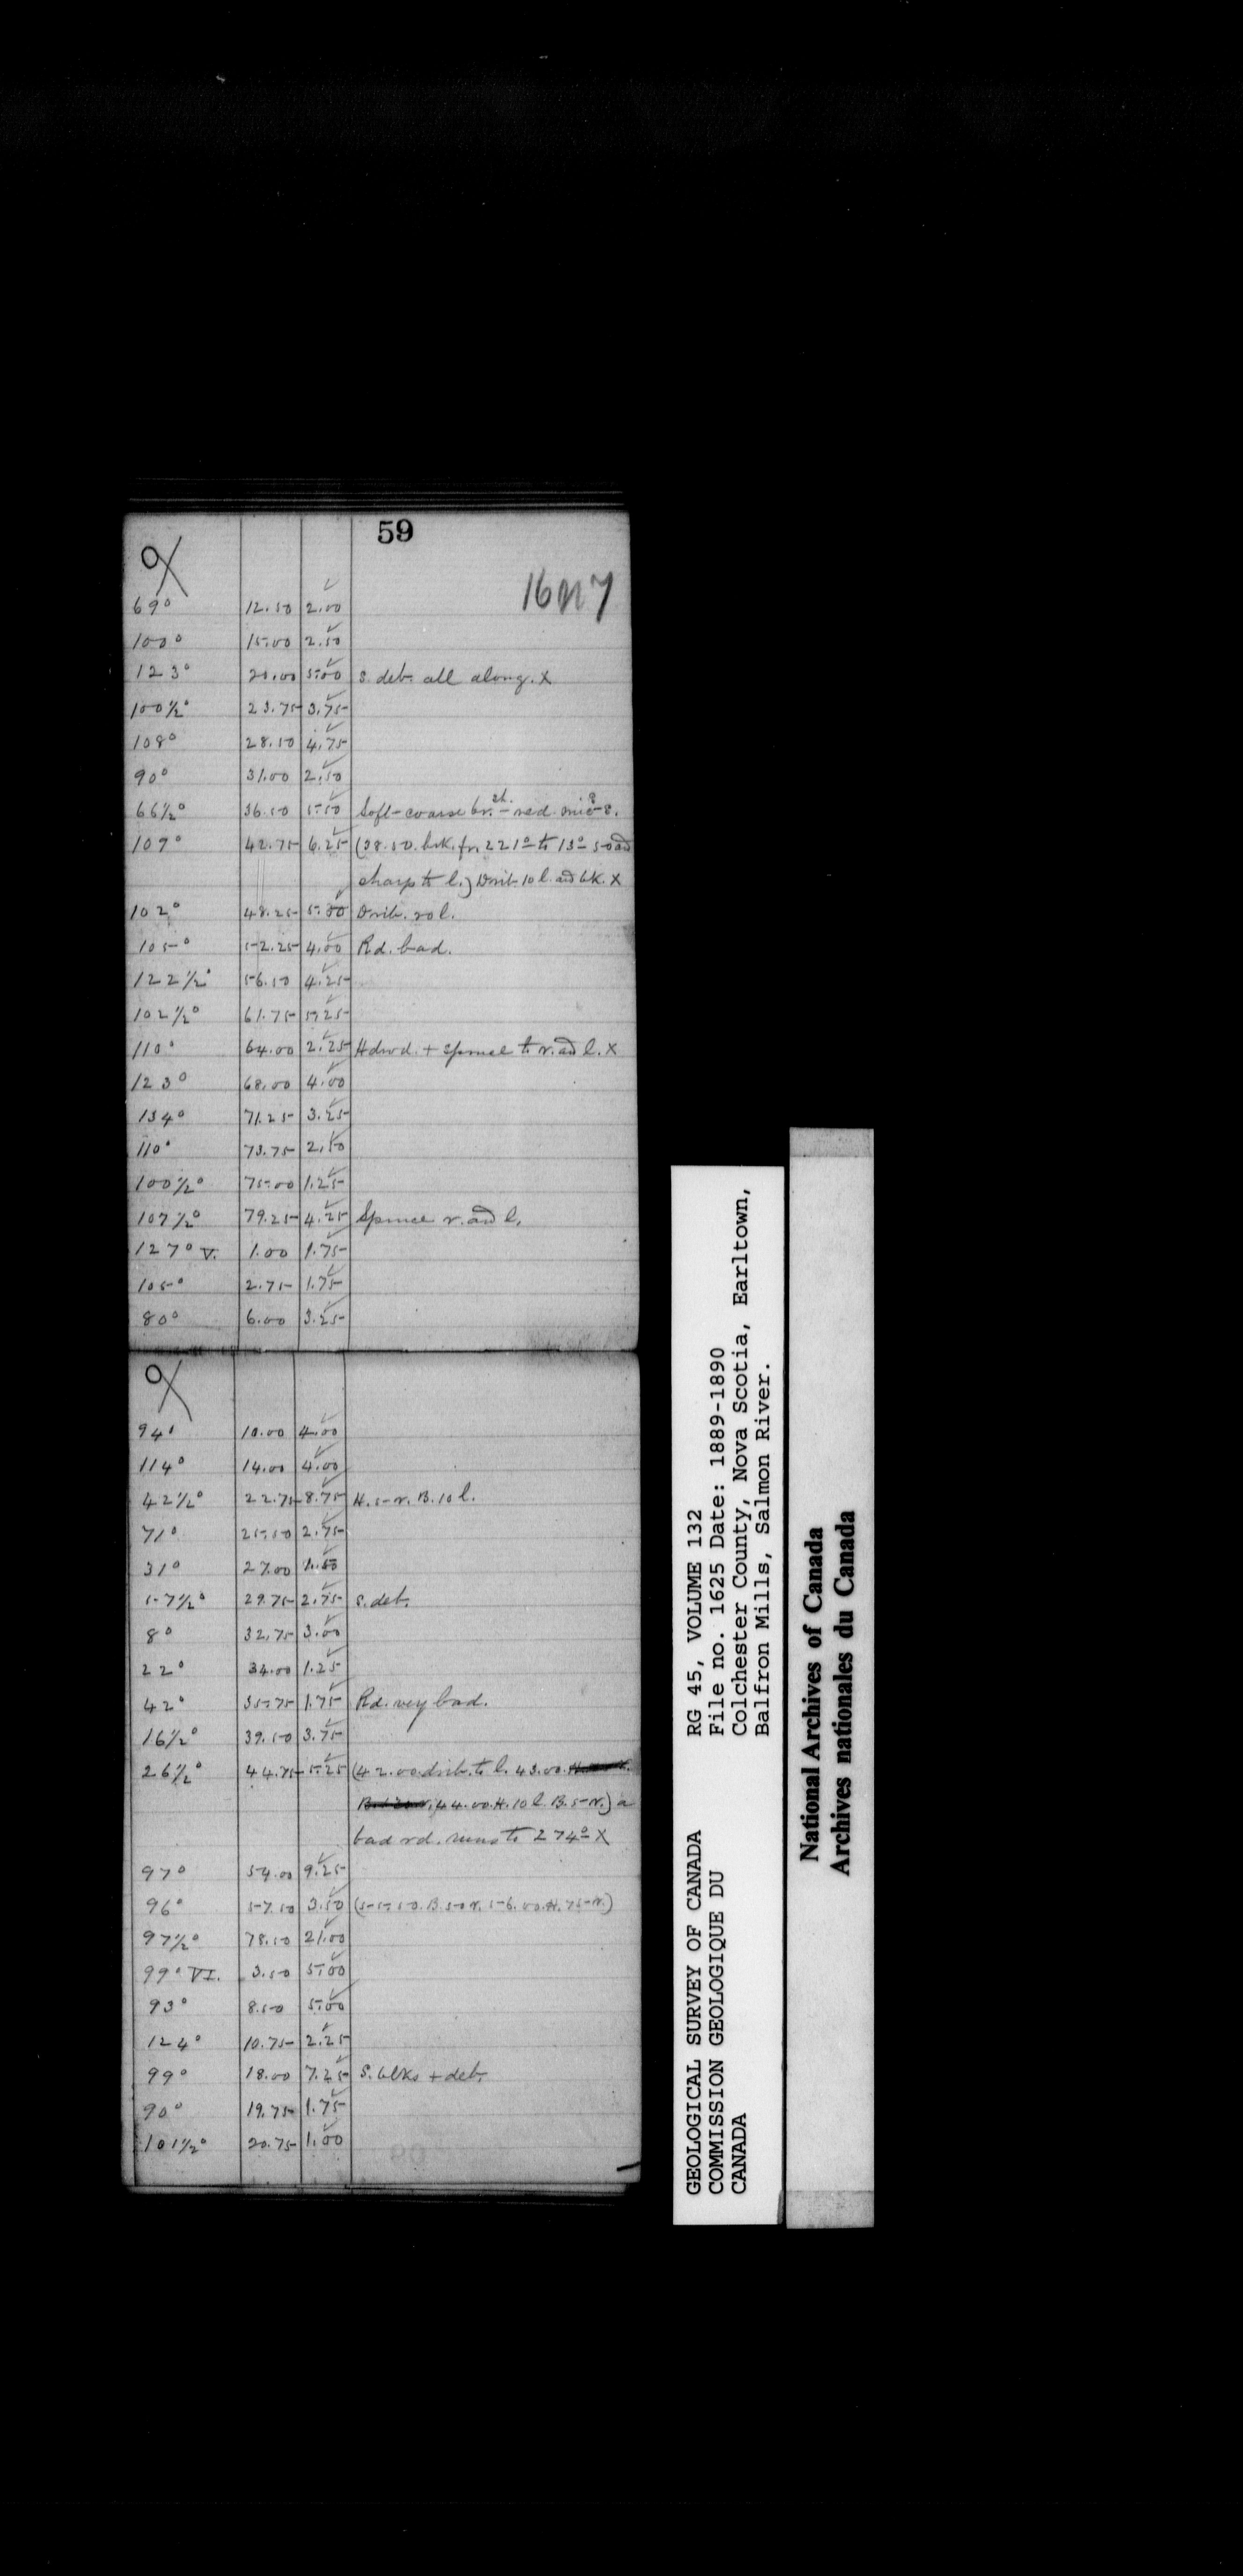 59
16N7
69° 12.50 2.00
100° 15.00 2.50
123° 20.00 5.00 S. deb. all along. X
100½° 23.75 3.75
108° 28.50 4.75
90° 31.00 2.50
66½° 36.50 5.50 Soft-coarse br.sh-red
109° 42.75 6.25 (38.50. brk. fr. 221° to 13° 50 and
sharp to l.) Drib. 10 l. and bk. X
102° 48.25 5.50 Drib. 20 l.
105° 52.25 4.00 Rd. bad.
122½° 56.50 4.25
102½° 61.75 5.25
110° 64.00 2.25 Hdwd. + spruce to r. and l. X
123° 68.00 4.00
134° 71.25 3.25
110° 73.75 2.50
100½° 75.00 1.25
107½° 79.25 4.25 Spruce r. and l.
127° V. 1.00 1.75
105° 2.75 1.75
80° 6.00 3.25
94° 10.00 4.00
114° 14.00 4.00
42½° 22.75 8.75 H. 5 r. B. 10 l.
71° 25.50 2.75
31° 27.00 1.50
57½° 29.75 2.75 S. deb.
8° 32.75 3.00
22° 34.00 1.25
42° 35.75 1.75 Rd. very bad.
16½° 39.50 3.75
26½° 44.75 5.25 (42.00. drib. to l. 43.00.
44.00. H. 10 l. B. 5 r.) a
bad rd. runs to 274° X
97° 54.00 9.25
96° 57.50 3.50 (55.50. B. 50 r. 56.00. H. 75 r.)
97½° 78.50 21.00
99° VI. 3.50 5.00
93° 8.50 5.00
124° 10.75 2.25
99° 18.00 7.25 S. blks + deb.
90° 19.75 1.75
101½° 20.75 1.00
GEOLOGICAL SURVEY OF CANADA
COMMISSION GEOLOGIQUE DU
CANADA
RG 45, VOLUME 132
File no. 1625 Date: 1889-1890
Colchester County, Nova Scotia, Earltown,
Balfron Mills, Salmon River.
National Archives of Canada
Archives nationales du Canada